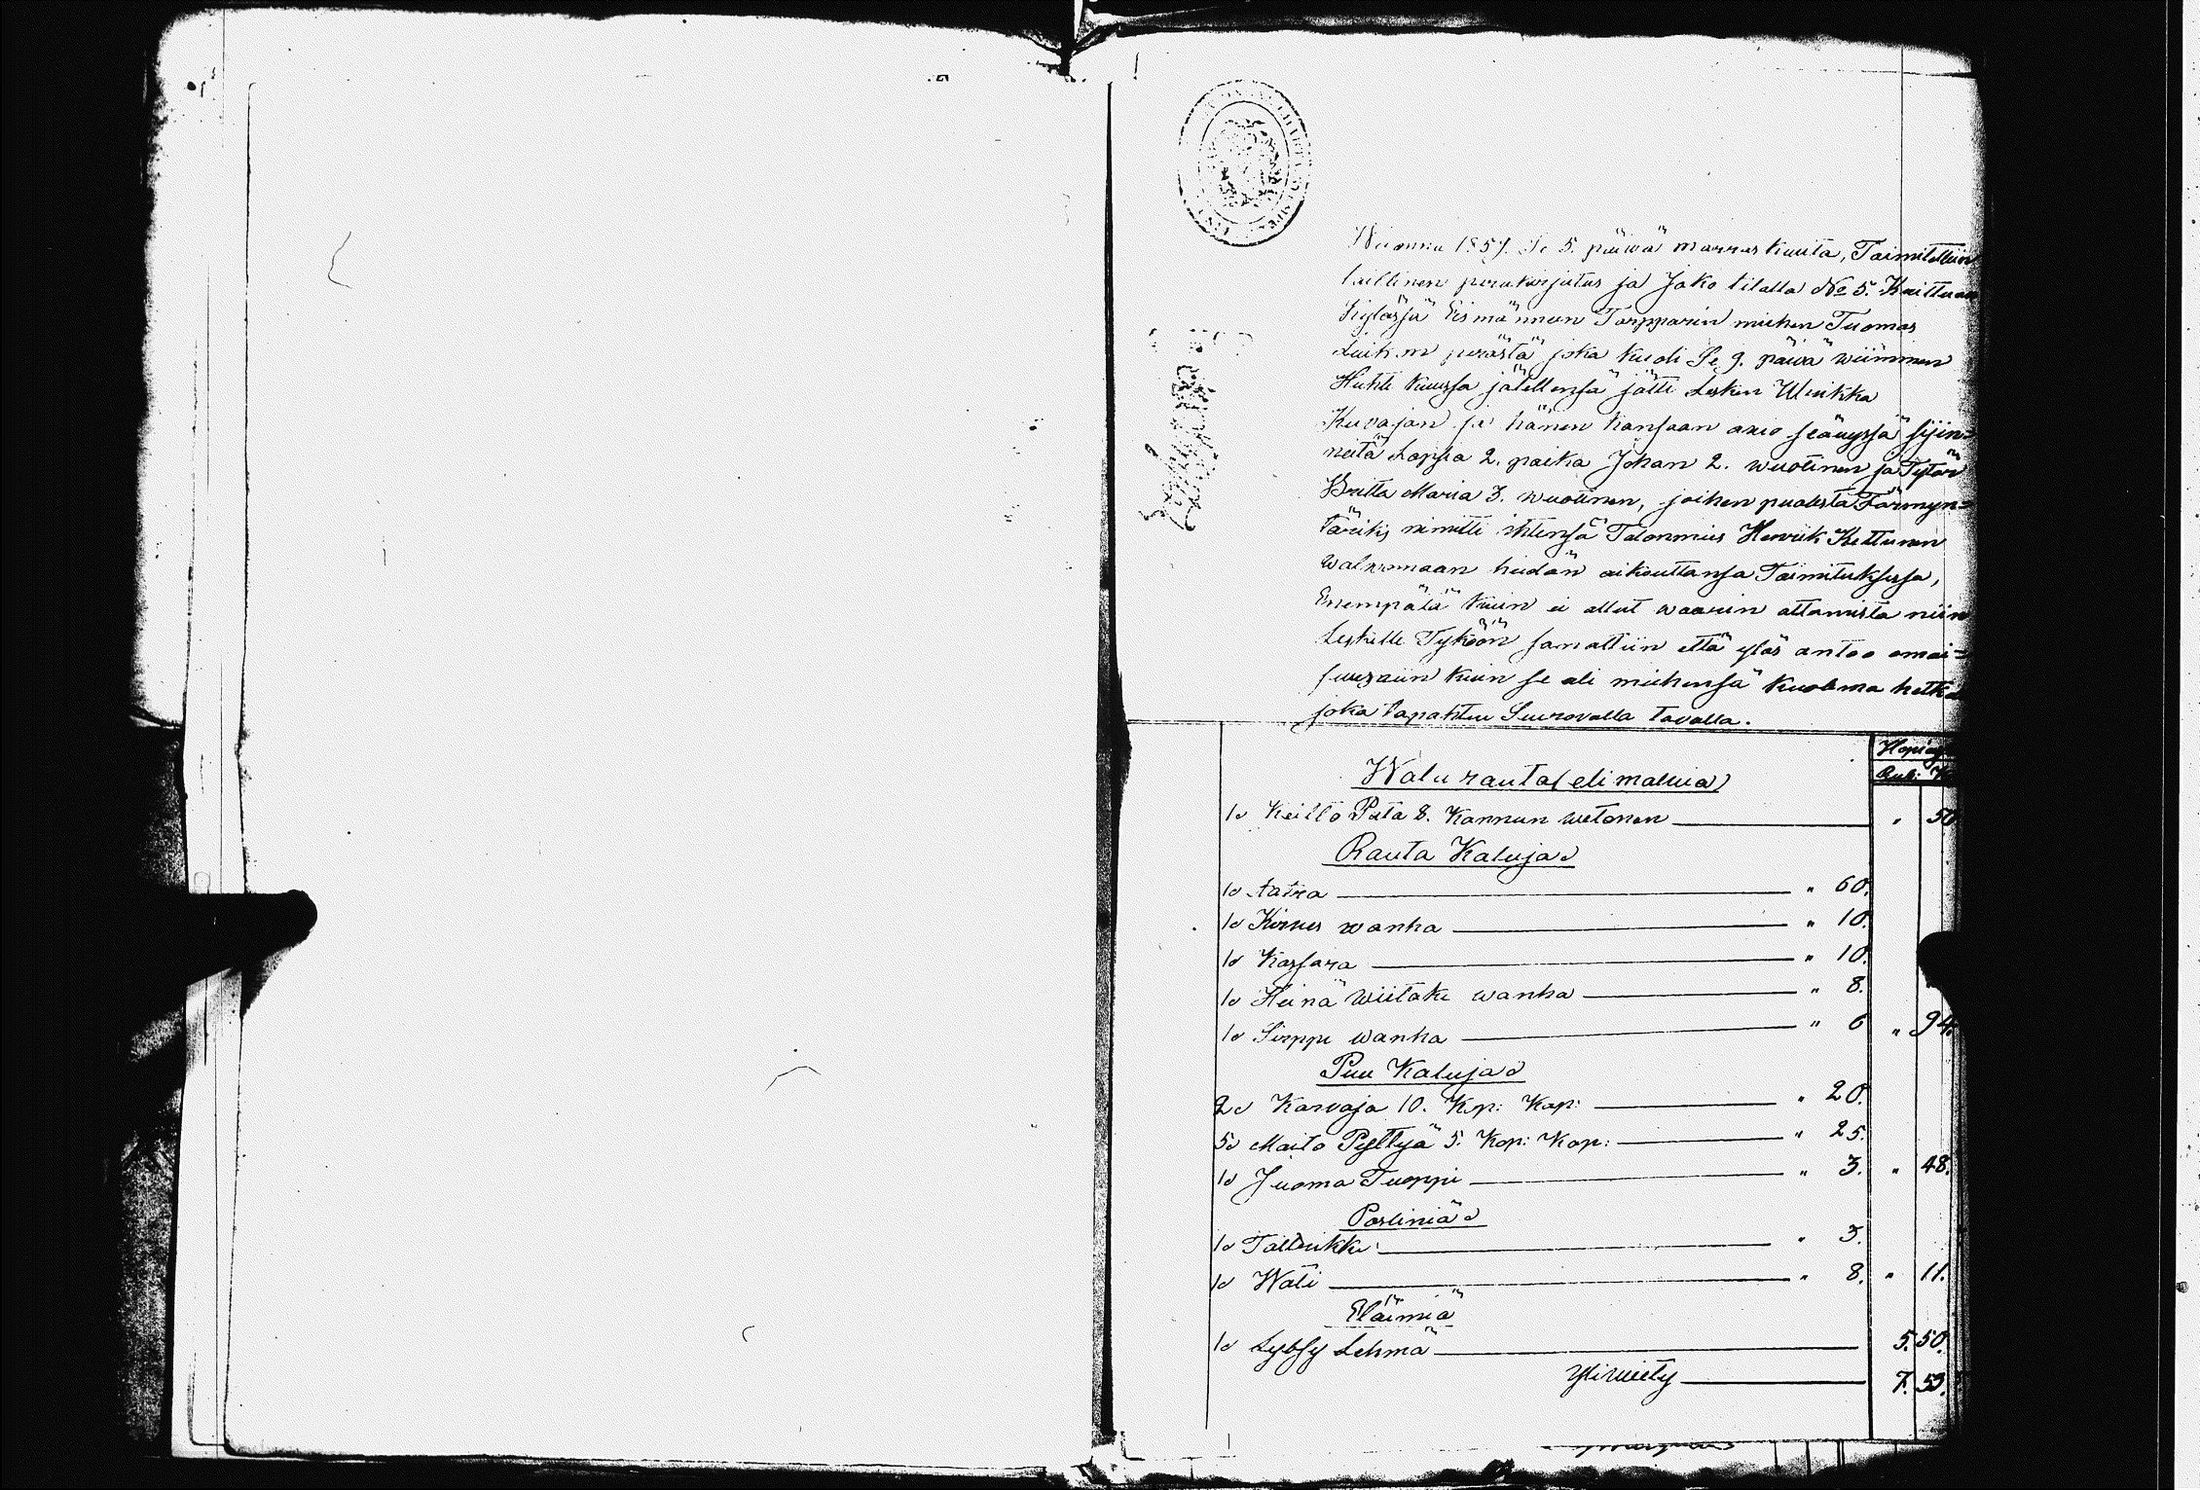 Wuonna 1857. Se 5. päivä marraskuuta, Toimitettiin
laillinen perukirjutus ja Jako tilalla No 5. Kuittuan
Kylässä Eismännun Torpparin miehen Tuomas
perästä joka kuoli Se 9. päivä wiiminen
Huhti kuussa jälellensä jätti Lesken Ulriikka
Kuvajan ja hänen kansaan awio seäuyssä sijin=
neitä Lapsia 2. poika Johan 2. wuotinen ja Tytär
Britta Maria 3. wuotinen, joihen puolesta Förmyn=
täriks nimitti ihtensä Talonmies Henrik Kettunen
walwomaan heidän oikeuttansa Toimituksessa,
Enempätä kuin ei ollut waarin ottamista niin
Leskelle Tyköön sanottiin että ylös antoo omai=
suuzziin kuin se oli miehensä kuolema hetke
joka tapahtuu Seurovalla tavalla.
Hopi
Rub: K
Walu rauta (eli malmia)
1d Keitto Pata 8. Kannun wetonen " 50
Rauta Kaluja d
1d Aatra " 60.
1d Kirves wanha " 10.
1d Kassara " 10.
1d Heinä Wiitake wanha " 8.
1d Sirppi wanha " 6 " 94.
Puu Kaluja d
2d Korvoja 10. Kop: Kap: " 20.
5d Maito Pyttyä 5. Kop: Kop: " 25.
1d Juoma Tuoppi " 3. " 48.
Posliniä d
1d Talldrikki " 3.
1d Wati " 8. " 11.
Eläimiä
1d Lybsy Lehmä 5. 50.
Ylimiety 7. 53.